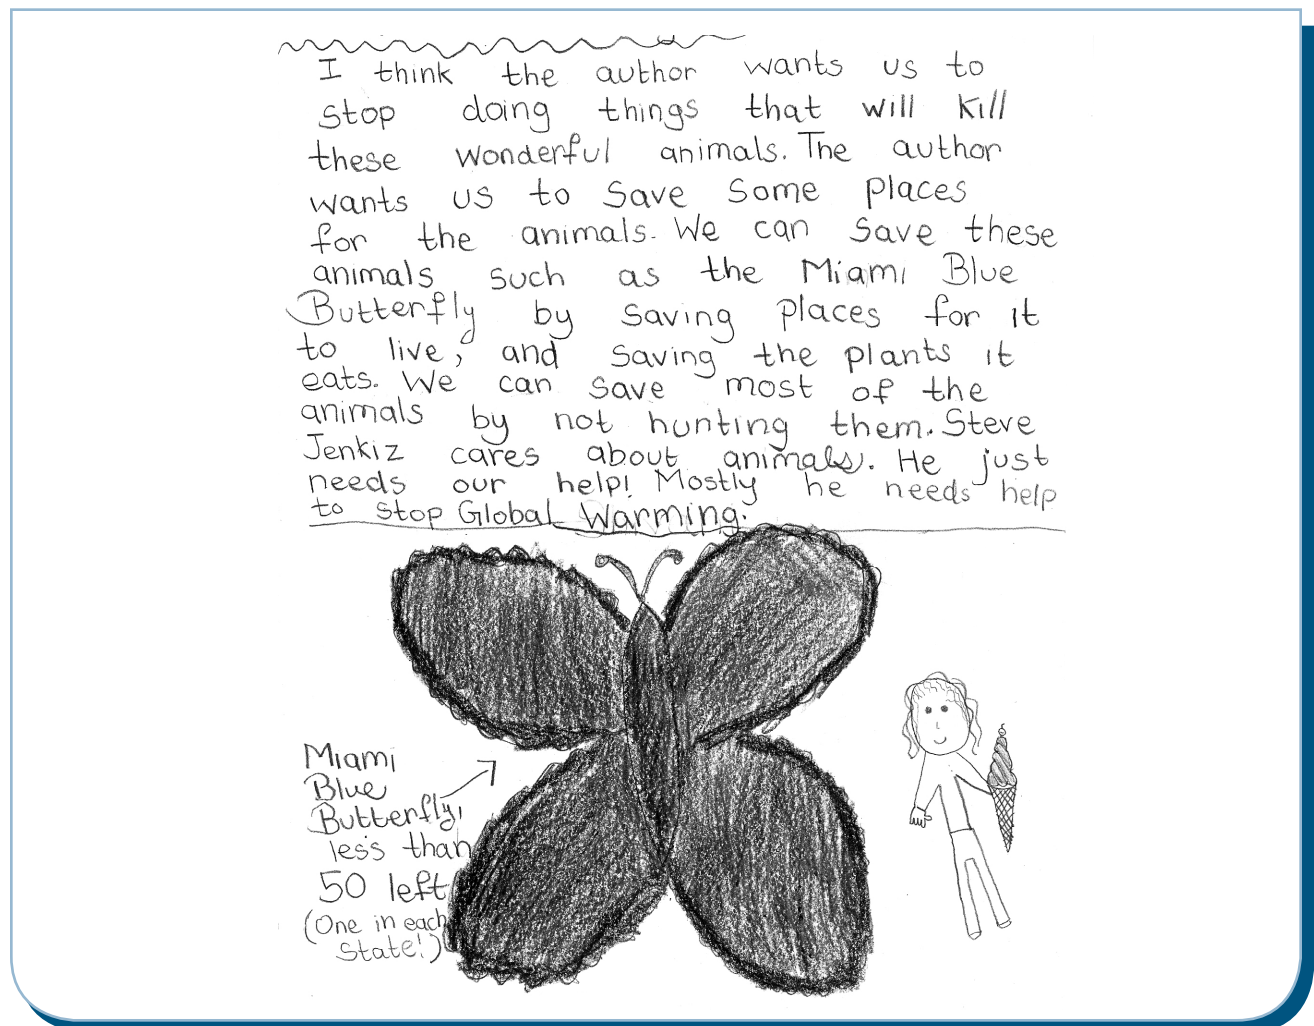 I think the author wants us to
stop doing things that will kill
these wonderful animals. The author
wants us to Save Some places
for the animals. We can Save these
animals such as the Miami Blue
Butterfly by Saving places for it
to live, and Saving the plants it
eats. We can Save most of the
animals by not hunting them. Steve
Jenkiz cares about animals. He just
needs our help! Mostly he needs help
to stop Global Warming.
Miami
Blue
Butterfly,
less than
50 left
(One in each
State!)